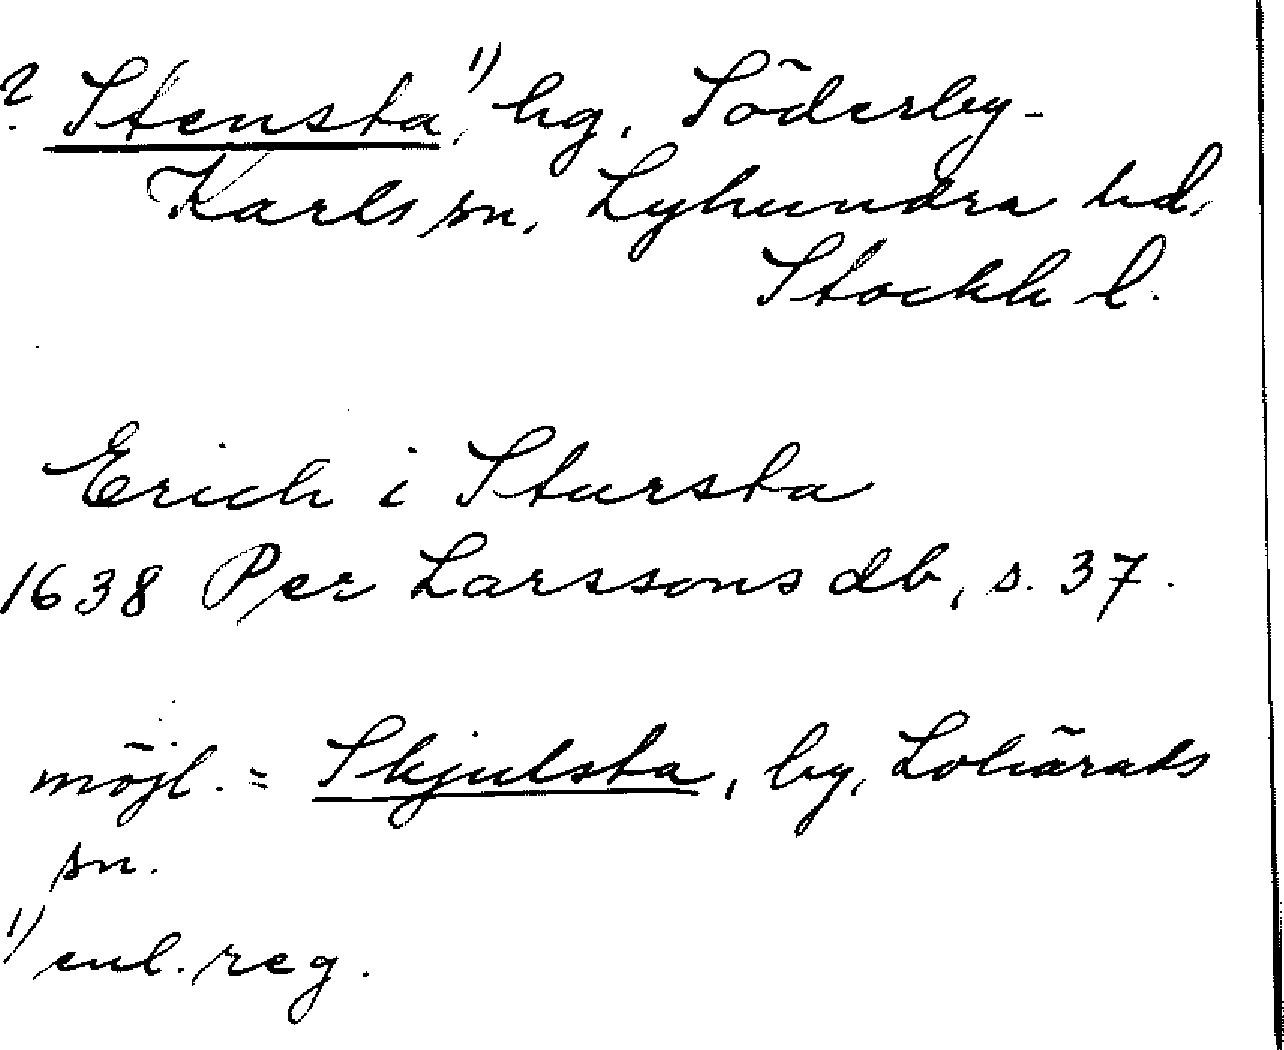 ? Stensta,¹⁾ hg. Söderby-
Karls sn, Lyhundra hd,
Stockh l.
Erich i Stursta
1638 Per Larssons db, s. 37.
möjl. = Skjulsta, by, Lohärads
sn.
¹⁾ enl. reg.